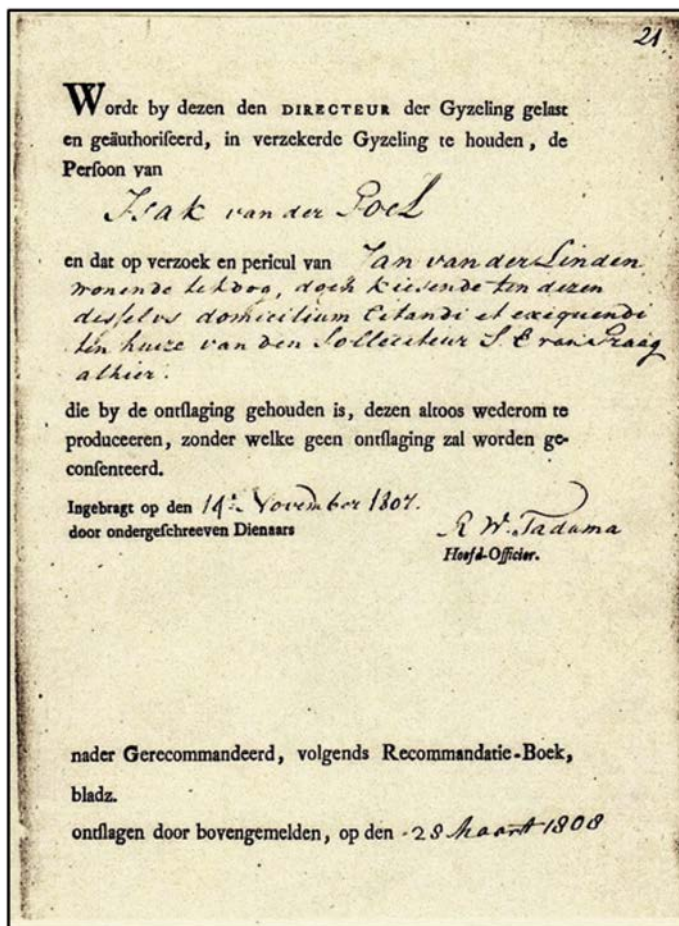 21
Wordt by dezen den DIRECTEUR der Gyzeling gelast
en geäuthoriſeerd, in verzekerde Gyzeling te houden, de
Perſoon van
Isak van der Poel
en dat op verzoek en pericul van Jan van der Linden
wonende te, doch kiesende ten dezen
desselvs domicilium Citandi et exequendi
ten huize van den Solleciteur S. E van Praag
alhier.
die by de ontſlaging gehouden is, dezen altoos wederom te
produceeren, zonder welke geen ontſlaging zal worden ge-
conſenteerd.
Ingebragt op den 14e November 1807.
door ondergeſchreeven Dienaars
R W. Tadama
Hoofd-Officier.
nader Gerecommandeerd, volgends Recommandatie-Boek,
bladz.
ontſlagen door bovengemelden, op den 28 Maart 1808